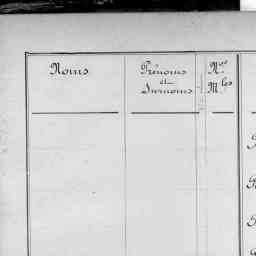 Noms
Prénoms
et
Surnoms
Nos
Mles